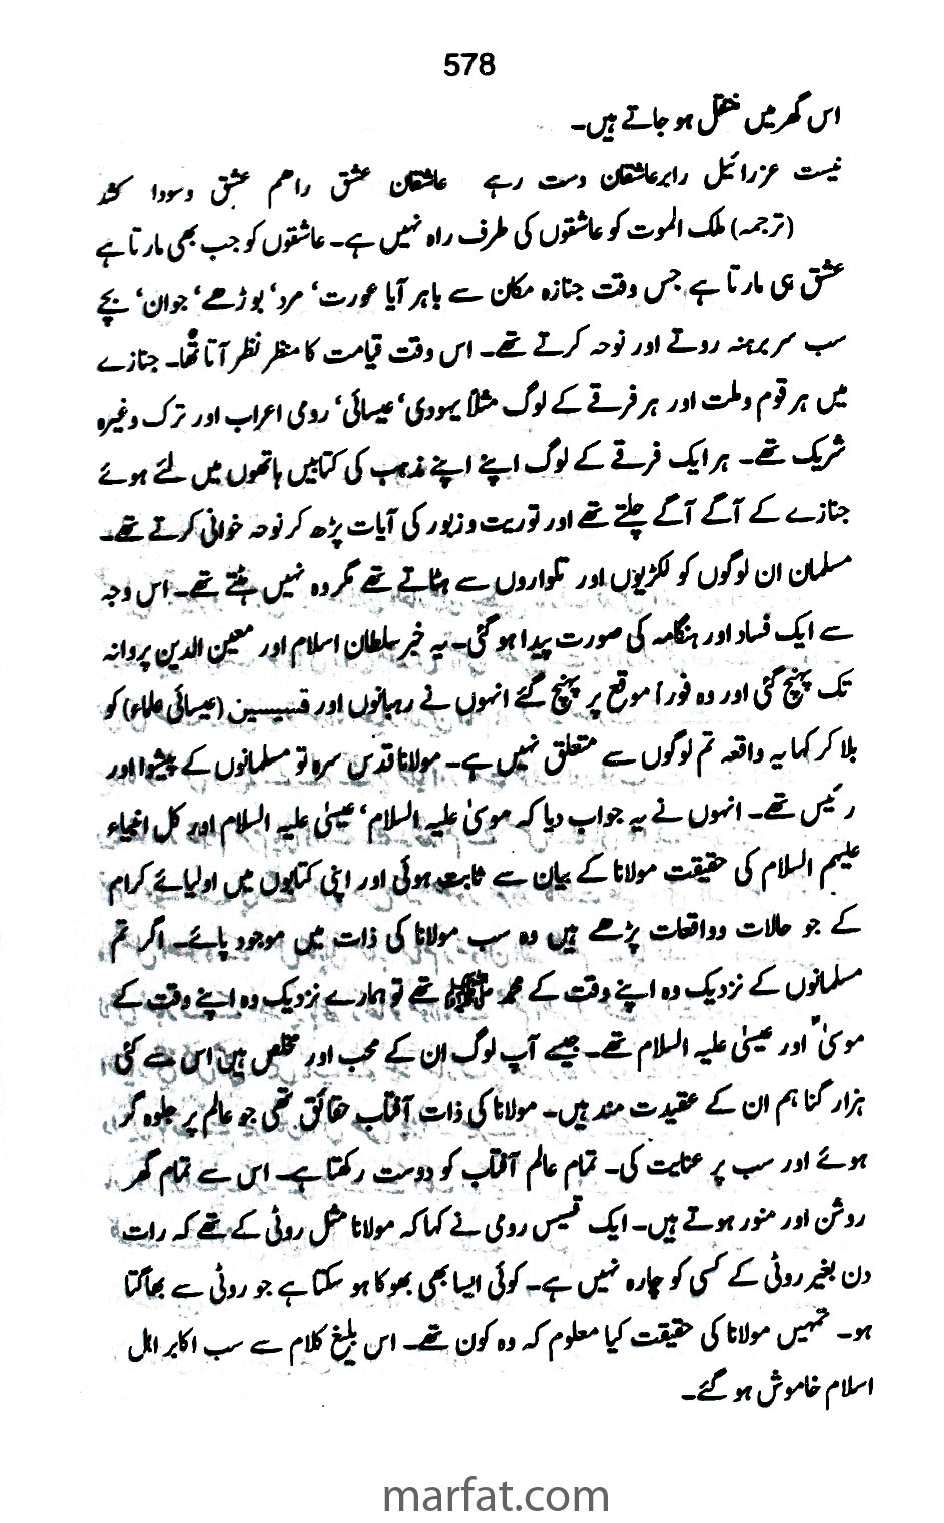 578
اس گھر میں منتقل ہو جاتے ہیں۔
نیست عزرائیل رابرعاشقان دست رہے عاشقان عشق راھم عشق وسودا کشد
(ترجمہ) ملک الموت کو عاشقوں کی طرف راہ نہیں ہے۔ عاشقوں کو جب بھی مارتا ہے
عشق ہی مارتا ہے جس وقت جنازہ مکان سے باہر آیا عورت‘ مرد‘ بوڑھے‘ جوان‘ بچے
سب سربرہنہ روتے اور نوحہ کرتے تھے۔ اس وقت قیامت کا منظر نظر آتا تھا۔ جنازے
میں ہر قوم و ملت اور ہر فرقے کے لوگ مثلاً یہودی‘ عیسائی‘ رومی اعراب اور ترک وغیرہ
شریک تھے۔ ہر ایک فرقے کے لوگ اپنے اپنے مذہب کی کتابیں ہاتھوں میں لئے ہوئے
جنازے کے آگے آگے چلتے تھے اور توریت و زبور کی آیات پڑھ کر نوحہ خوانی کرتے تھے۔
مسلمان ان لوگوں کو لکڑیوں اور تلواروں سے ہٹاتے تھے مگر وہ نہیں ہٹتے تھے۔ اس وجہ
سے ایک فساد اور ہنگامہ کی صورت پیدا ہو گئی۔ یہ خبر سلطان اسلام اور معین الدین پروانہ
تک پہنچ گئی اور وہ فوراً موقع پر پہنچ گئے انہوں نے رہبانوں اور قسیسین (عیسائی علماء) کو
بلا کر کہا یہ واقعہ تم لوگوں سے متعلق نہیں ہے۔ مولانا قدس سرہ تو مسلمانوں کے پیشوا اور
رئیس تھے۔ انہوں نے یہ جواب دیا کہ موسیٰ علیہ السلام‘ عیسیٰ علیہ السلام اور کل انبیاء
علیہم السلام کی حقیقت مولانا کے بیان سے ثابت ہوئی اور اپنی کتابوں میں اولیائے کرام
کے جو حالات وواقعات پڑھے ہیں وہ سب مولانا کی ذات میں موجود پائے۔ اگر تم
مسلمانوں کے نزدیک وہ اپنے وقت کے محمد ﷺ تھے تو ہمارے نزدیک وہ اپنے وقت کے
موسیٰؑ اور عیسیٰ علیہ السلام تھے۔ جیسے آپ لوگ ان کے محب اور مخلص ہیں اس سے کئی
ہزار گنا ہم ان کے عقیدت مند ہیں۔ مولانا کی ذات آفتاب حقائق تھی جو عالم پر جلوہ گر
ہوئے اور سب پر عنایت کی۔ تمام عالم آفتاب کو دوست رکھتا ہے۔ اس سے تمام گھر
روشن اور منور ہوتے ہیں۔ ایک قسیس رومی نے کہا کہ مولانا مثل روٹی کے تھے کہ رات
دن بغیر روٹی کے کسی کو چارہ نہیں ہے۔ کوئی ایسا بھی بھوکا ہو سکتا ہے جو روٹی سے بھاگتا
ہو۔ تمہیں مولانا کی حقیقت کیا معلوم کہ وہ کون تھے۔ اس بلیغ کلام سے سب اکابر اہل
اسلام خاموش ہو گئے۔
marfat.com